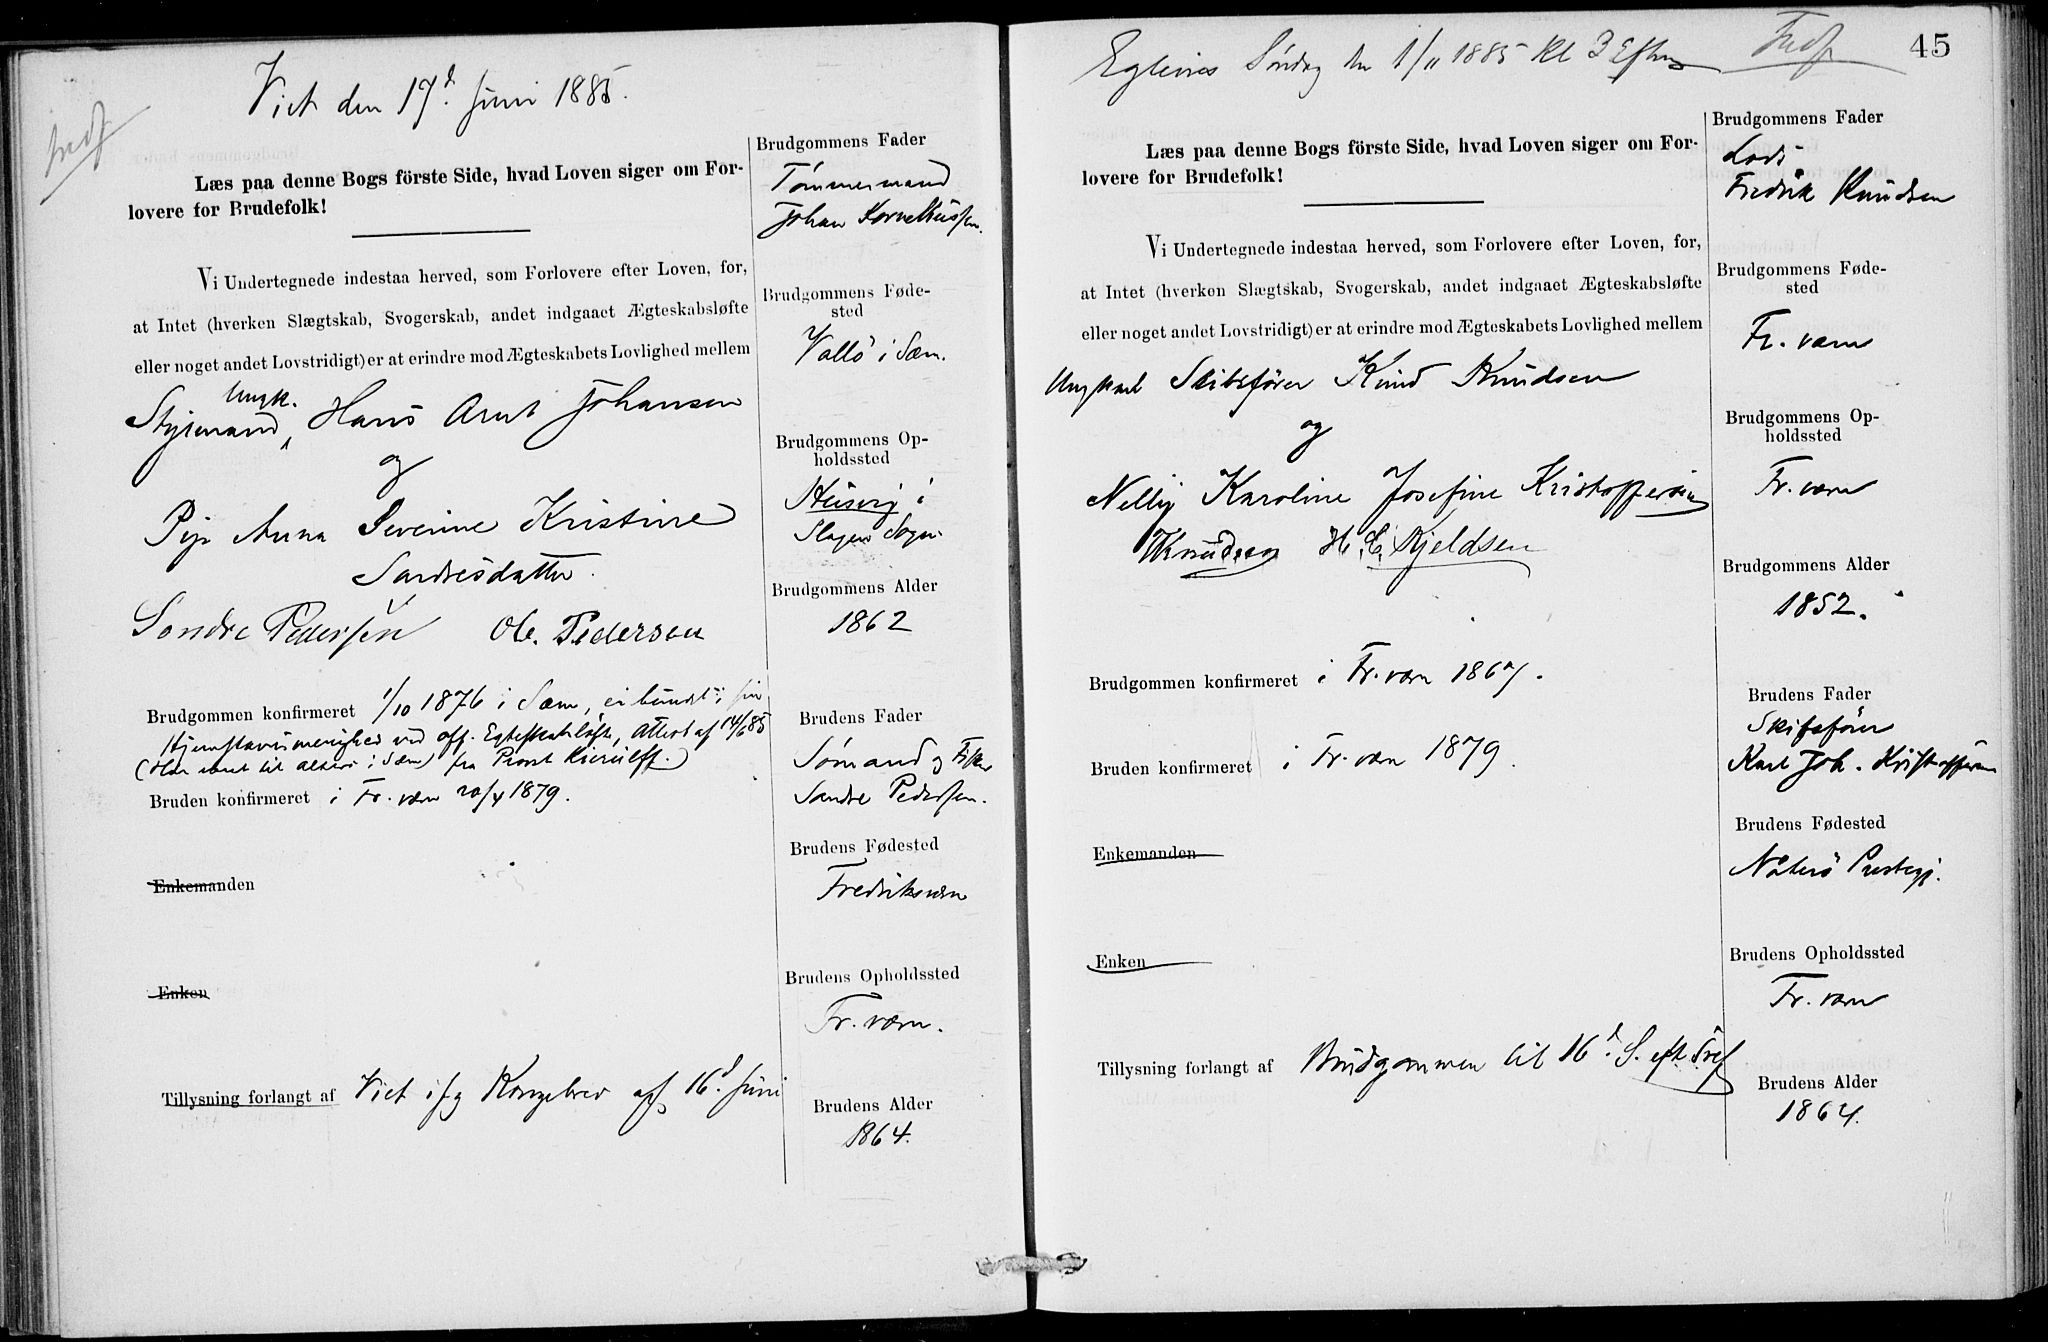 Viet den 17d Juni 1885.
Indf
Læs paa denne Bogs förste Side, hvad Loven siger om For-
lovere for Brudefolk!
Vi Undertegnede indestaa herved, som Forlovere efter Loven, for,
at Intet (hverken Slægtskab, Svogerskab, andet indgaaet Ægteskabsløfte
eller noget andet Lovstridigt) er at erindre mod Ægteskabets Lovlighed mellem
Ungk.
Styrmand Hans Arnt Johansen
og
Pige Anna Severine Kristine
Sandresdatter.
Sondre Pedersen Ole. Pedersen
Brudgommen konfirmeret 1/10 1876 i Sæm, ei bundet i sin
Hjemstavnsmenighed ved off. Egteskabsløfte, Attest af 14/6 85
(Har været til alters i Sæm) fra Provst Kierulff.)
Bruden konfirmeret i Fr. værn 20/4 1879.
Enkemanden
Enken
Tillysning forlangt af Viet ifg Kongebrev af 16d Juni
Brudgommens Fader
Tømmermand
Johan Korneliussen.
Brudgommens Føde-
sted
Vallö i Sæm.
Brudgommens Op-
holdssted
Husvig i
Slagen Sogn.
Brudgommens Alder
1862
Brudens Fader
Sømand og Fisker
Sandre Pedersen.
Brudens Fødested
Fredriksværn
Brudens Opholdssted
Fr. værn.
Brudens Alder
1864.
Egtevies Søndag den 1/11 1885 Kl 3 Efterm
Indf
45
Læs paa denne Bogs förste Side, hvad Loven siger om For-
lovere for Brudefolk!
Vi Undertegnede indestaa herved, som Forlovere efter Loven, for,
at Intet (hverken Slægtskab, Svogerskab, andet indgaaet Ægteskabsløfte
eller noget andet Lovstridigt) er at erindre mod Ægteskabets Lovlighed mellem
Ungkarl Skibsfører Knud Knudsen
og
Nelly Karoline Josefine Kristoffersen
Knudsen H. C. Kjeldsen
Brudgommen konfirmeret i Fr. værn 1867.
Bruden konfirmeret i Fr. værn 1879.
Enkemanden
Enken
Tillysning forlangt af Brudgommen til 16d S. eft. Tref
Brudgommens Fader
Lods
Fredrik Knudsen
Brudgommens Føde-
sted
Fr. værn
Brudgommens Op-
holdssted
Fr. værn
Brudgommens Alder
1852.
Brudens Fader
Skibsfører
Karl Joh. Kristoffersen
Brudens Fødested
Nøterö Prestegj.
Brudens Opholdssted
Fr. værn
Brudens Alder
1864.